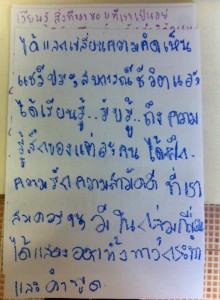 เรียนรู้ สิ่งที่เราชอบที่เราเป็นอยู่
ได้แลกเปลี่ยนความคิดเห็น
แชร์ประสบการณ์ชีวิตและ
ได้เรียนรู้..รับรู้..ถึงความ
รู้สึกของแต่ละคน ได้รู้สึก
ความรัก ความสามัคคี ที่เรา
ในกลุ่มเพื่อน
ได้แสดงออกทั้งการกระทำ
และคำพูด